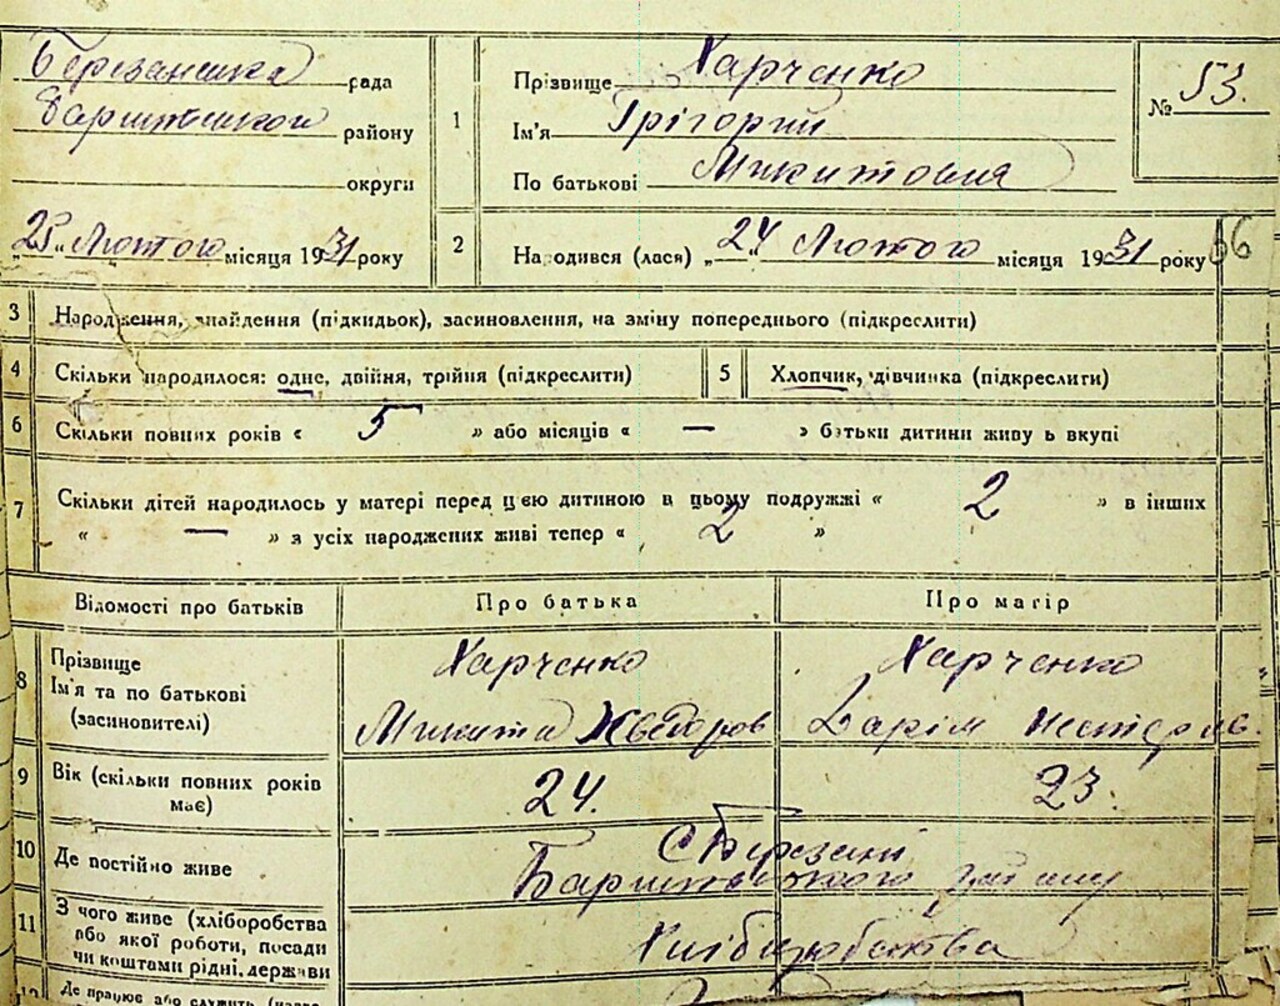 Березанська рада
Баришівського району
округи
„25“ Лютого місяця 1931 року
1
Прізвище Харченко
Ім'я Грігорий
По батькові Микитовия
№ 53.
2
Народився (лася) „24“ Лютого місяця 1931 року
66
3 Народження, знайдення (підкидьок), засиновлення, на зміну попереднього (підкреслити)
4 Скільки народилося: одне, двійня, трійня (підкреслити)
5 Хлопчик, дівчинка (підкреслити)
6 Скільки повних років « 5 » або місяців « — » батьки дитини живуть вкупі
7 Скільки дітей народилось у матері перед цією дитиною в цьому подружжі « 2 » в інших
« — » з усіх народжених живі тепер « 2 »
Відомості про батьків
Про батька
Про матір
8 Прізвище
Ім'я та по батькові
(засиновителі)
Харченко
Микита Хведоров
Харченко
Дарія Нестеров.
9 Вік (скільки повних років
має)
24.
23.
10 Де постійно живе
С Березані
Баришівського району
11 З чого живе (хліборобства
або якої роботи, посади
чи коштами рідні, держави
Хліборобства
12 Де працює або служить (назва